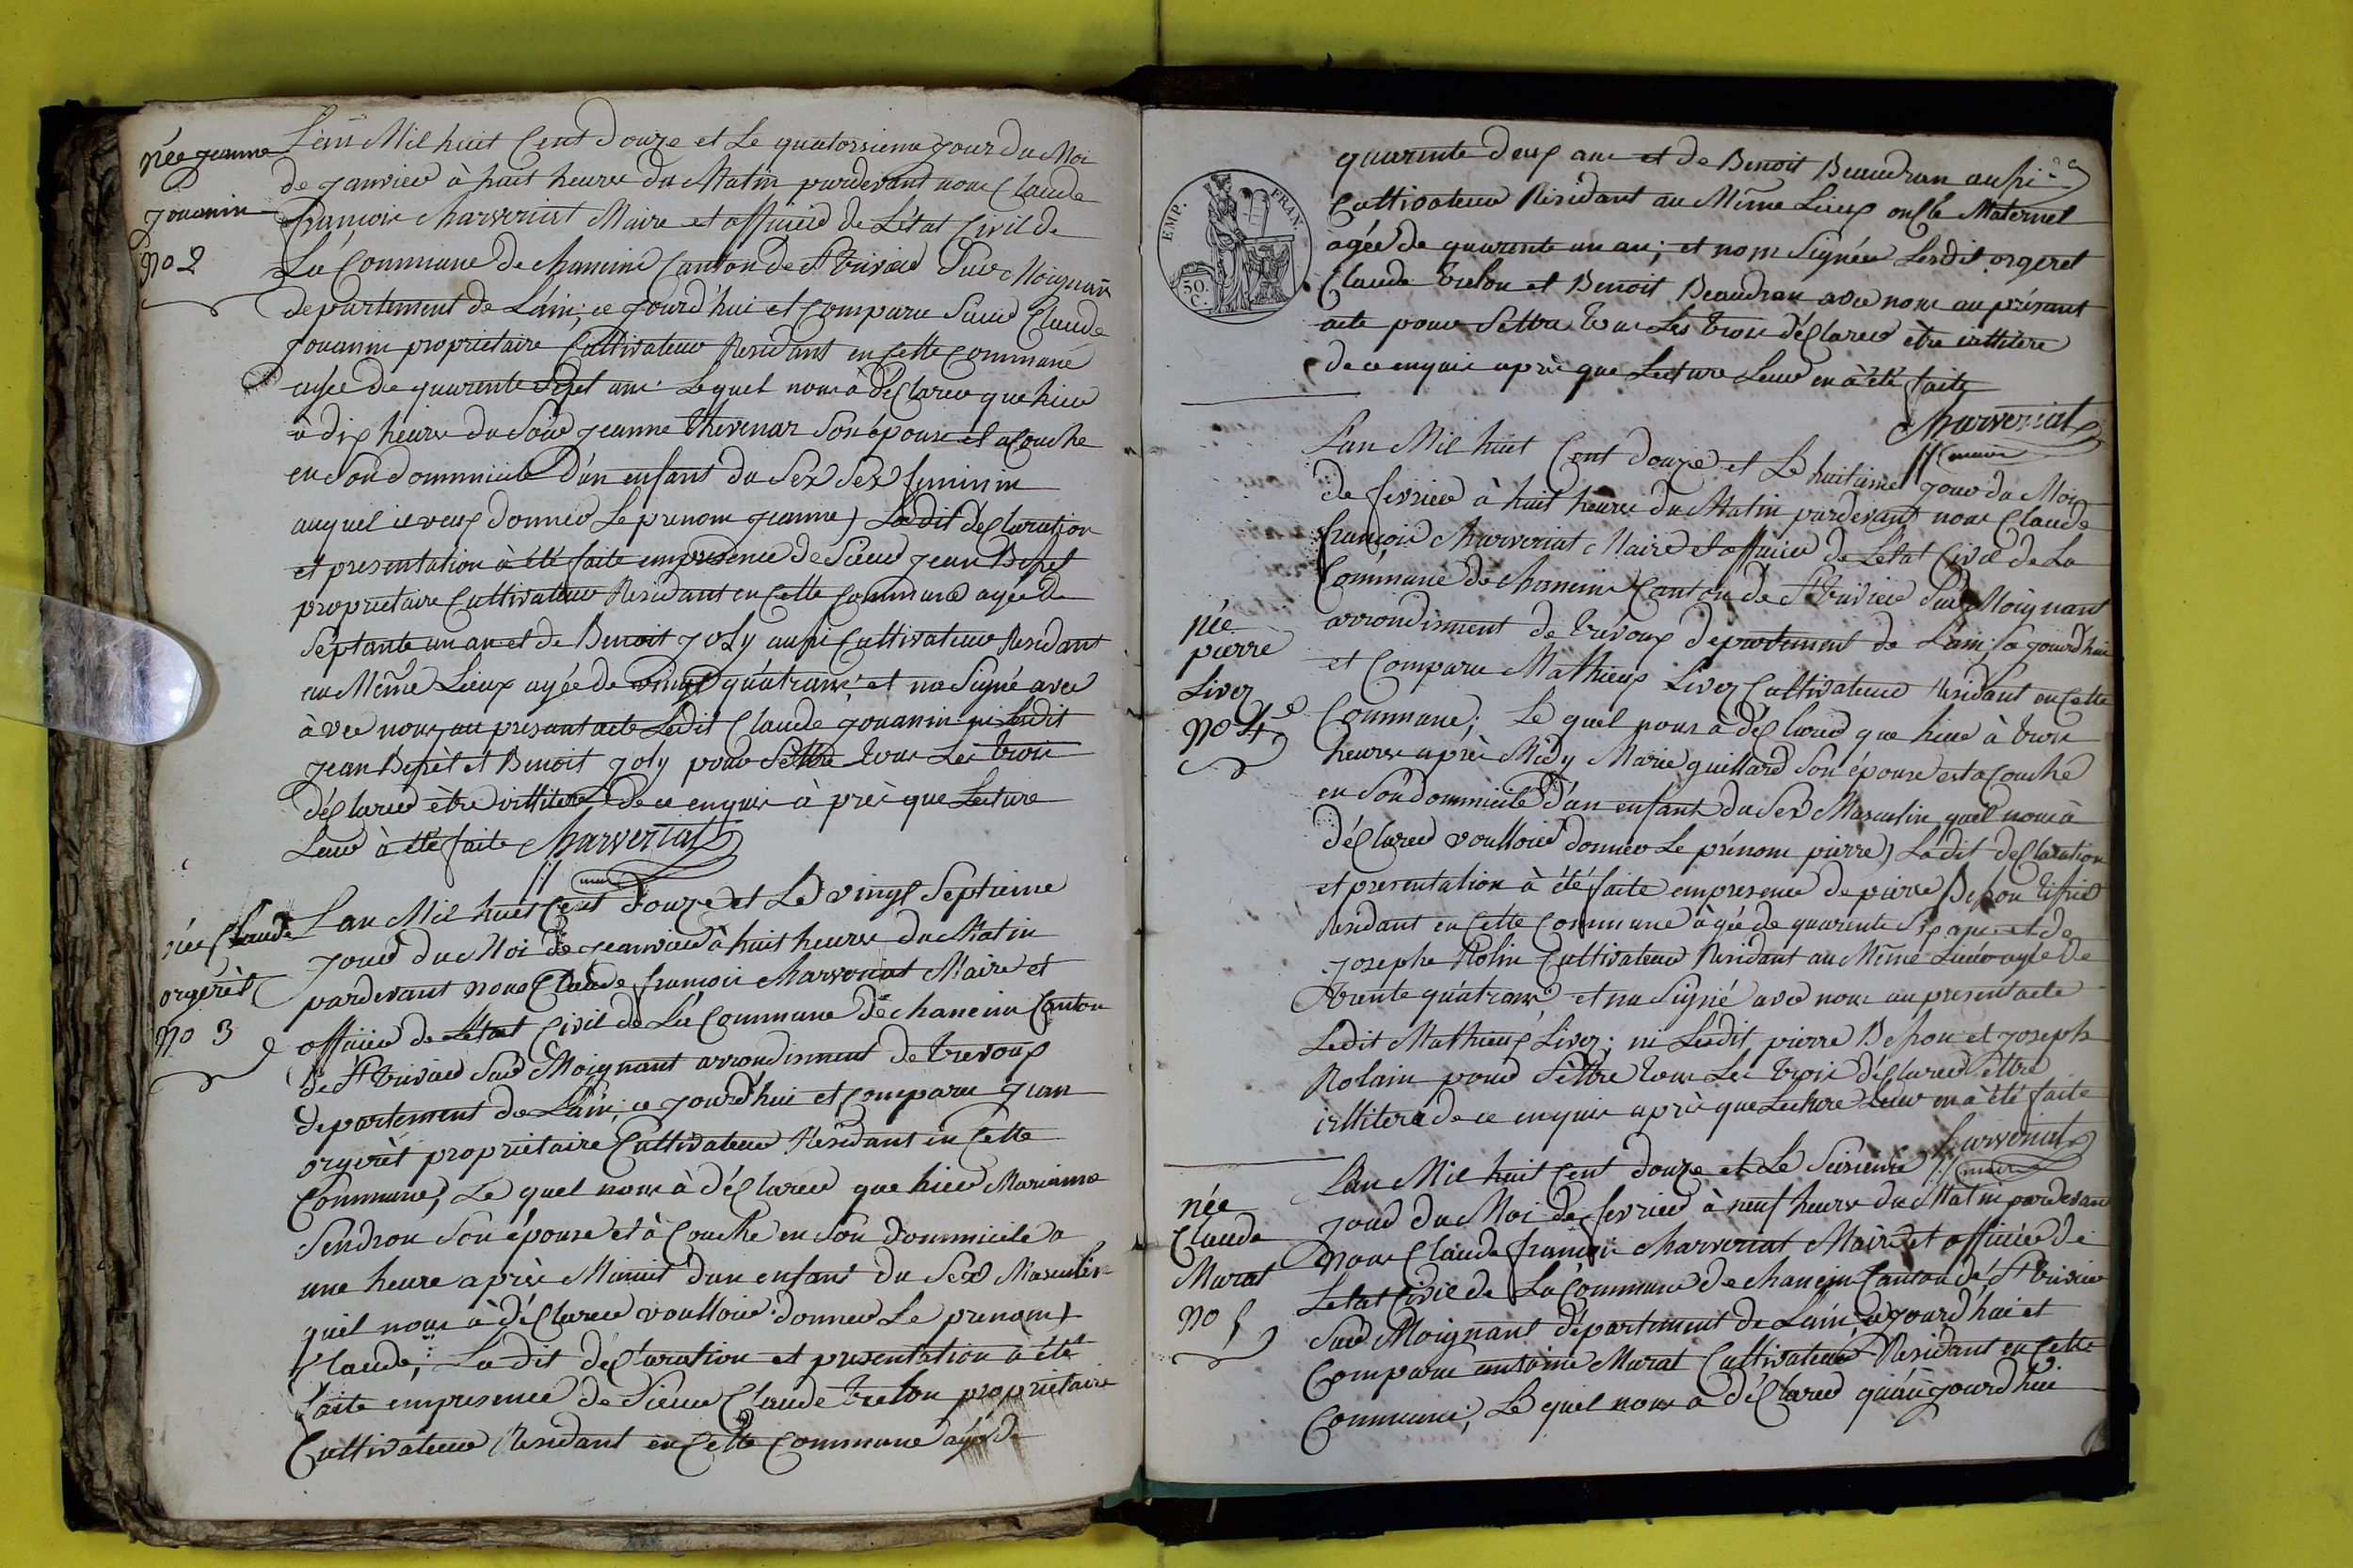 née jeanne
jouanin
No 2
L'an Mil huit Cent Douze et Le quatorsieme jour du Moi
de janvier à huit heures du Matin pardevant nous Claude
françois Charveriat Maire et officier de L'état Civil de
La Commune de chaneins Canton de St trivier Sur Moignant
departement de L'ain; ce jourd'hui et Comparu Sieur Claude
jouanin proprietaire Cultivateur Residant en Cette Commune
agée de quarente Sept ans Le quel nous à déClarer que hier
à dix heures du Soir jeanne thevenar Son épouse et acouche
en Son dommicile D'un enfant du Sex Sex feminin
auquel il veux donner Le prenom jeanne) La dit deClaration
et presentation à été faite empresence de Sieur jean Besset
proprietaire Cultivateur Residant en Cette Commune agée de
Septante un an et de Benoit joly aussi Cultivateur Residant
au Même Lieux agée de vingt quatrans et na Signé avec
à vec nous au présant acte Ledit Claude jouanin ni Lesdit
jean Besset et Benoit joly pour Settre tous Les trois
déClarer être illitere de ce enquis à près que Lecture
Leur à été faite Charveriat
maire
née Claude
orgerèt
No 3
Lan Mil huit Cent Douze et Le vingt Septieme
jour du Moi de jeanvier à huit heures du Matin
pardevant nous Claude françois Charveriat Maire et
officier de Létat Civil de La Commune de chaneins Canton
de St trivier Sur Moignant arrondisment de trevoux
departement de L'ain; ce jourd'hui et Comparu jean
orgerèt proprietaire Cultivateur Residant en Cette
Commune, Le quel nous à déClarer que hier Marianne
Sendron Son épouse et à Couche en Son Dommicile a
une heure après Minuit d'un enfant du Sex Masculin
quil nous à déClarer voulloir donner Le prenom)
Claude; La dit déClaration et presentation à été
faite empresence de Sieur Claude trelon proprietaire
Cultivateur Residant en Cette Commune agée de
EMP. FRAN.
50.
C.
quarente deux ans et de Benoit Beaudran aussi
Cultivateur Residant au Même Lieux onCle Maternel
agée de quarente un an; et nom Signée Lesdit orgeret
Claude trelon et Benoit Beaudran avec nous au présant
acte pour Settre tous Les trois déClarer être illitere
de ce enquis après que Lecture Leur en à été faite
Charveriat
maire
née
pierre
Liver
No 4e
Lan Mil huit Cent Douze et Le huitieme jour du Moi
de fevrier à huit heures du Matin pardevant nous Claude
françois Charveriat Maire et officier de Letat Civil de La
Commune de chaneins Canton de St trivier Sur Moignant
arrondisment de trévoux departement de L'ain; ce jourd'hui
et Comparu Mathieux Liver Cultivateur Residant en Cette
Commune; Le quel nous à déClarer que hier à trois
heures après Midy Marie guillard Son épouse est acouche
en Son dommicile d'un enfant du Sex Masculin quil nous à
déClarer voulloir donner Le prénom pierre) Ladit deClaration
et presentation à été faite empresence de pierre
Residant en Cette Commune àgée de quarente Six ans et de
josephe Rolin Cultivateur Residant au Même Lieu agée de
trente quatrans et na Signé avec nous au present acte
Ledit Mathieux Liver; ni Lesdit pierre et joseph
Rolain pour Sèttre tous Les trois déClarer Settre
illitere de ce enquis après que Lecture Leur en à été faite
Charveriat
maire
née
Claude
Murat
No 5
Lan Mil huit Cent Douze et Le Seisieme
jour du Moi de fevrier à neuf heures du Matin pardevant
nous Claude françois Charveriat Maire et officier de
Letat Civil de La Commune de chaneins Canton de St trivier
Sur Moignant département de L'ain, cejourd'hui et
Comparu antoine Murat Cultivateur Residant en Cette
Commune, Le quel nous à déClarer qu'aujourd'hui